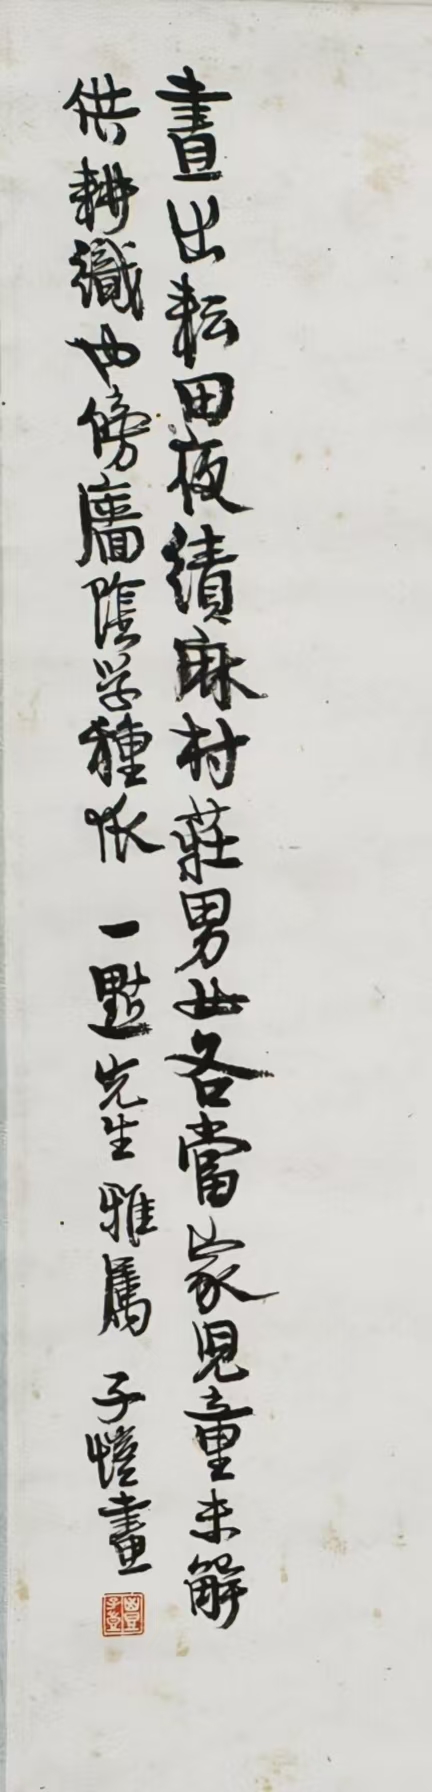 晝出耘田夜績麻村莊男女各當家兒童未解
供耕織也傍牆陰学種瓜 一點先生雅属 子愷畫